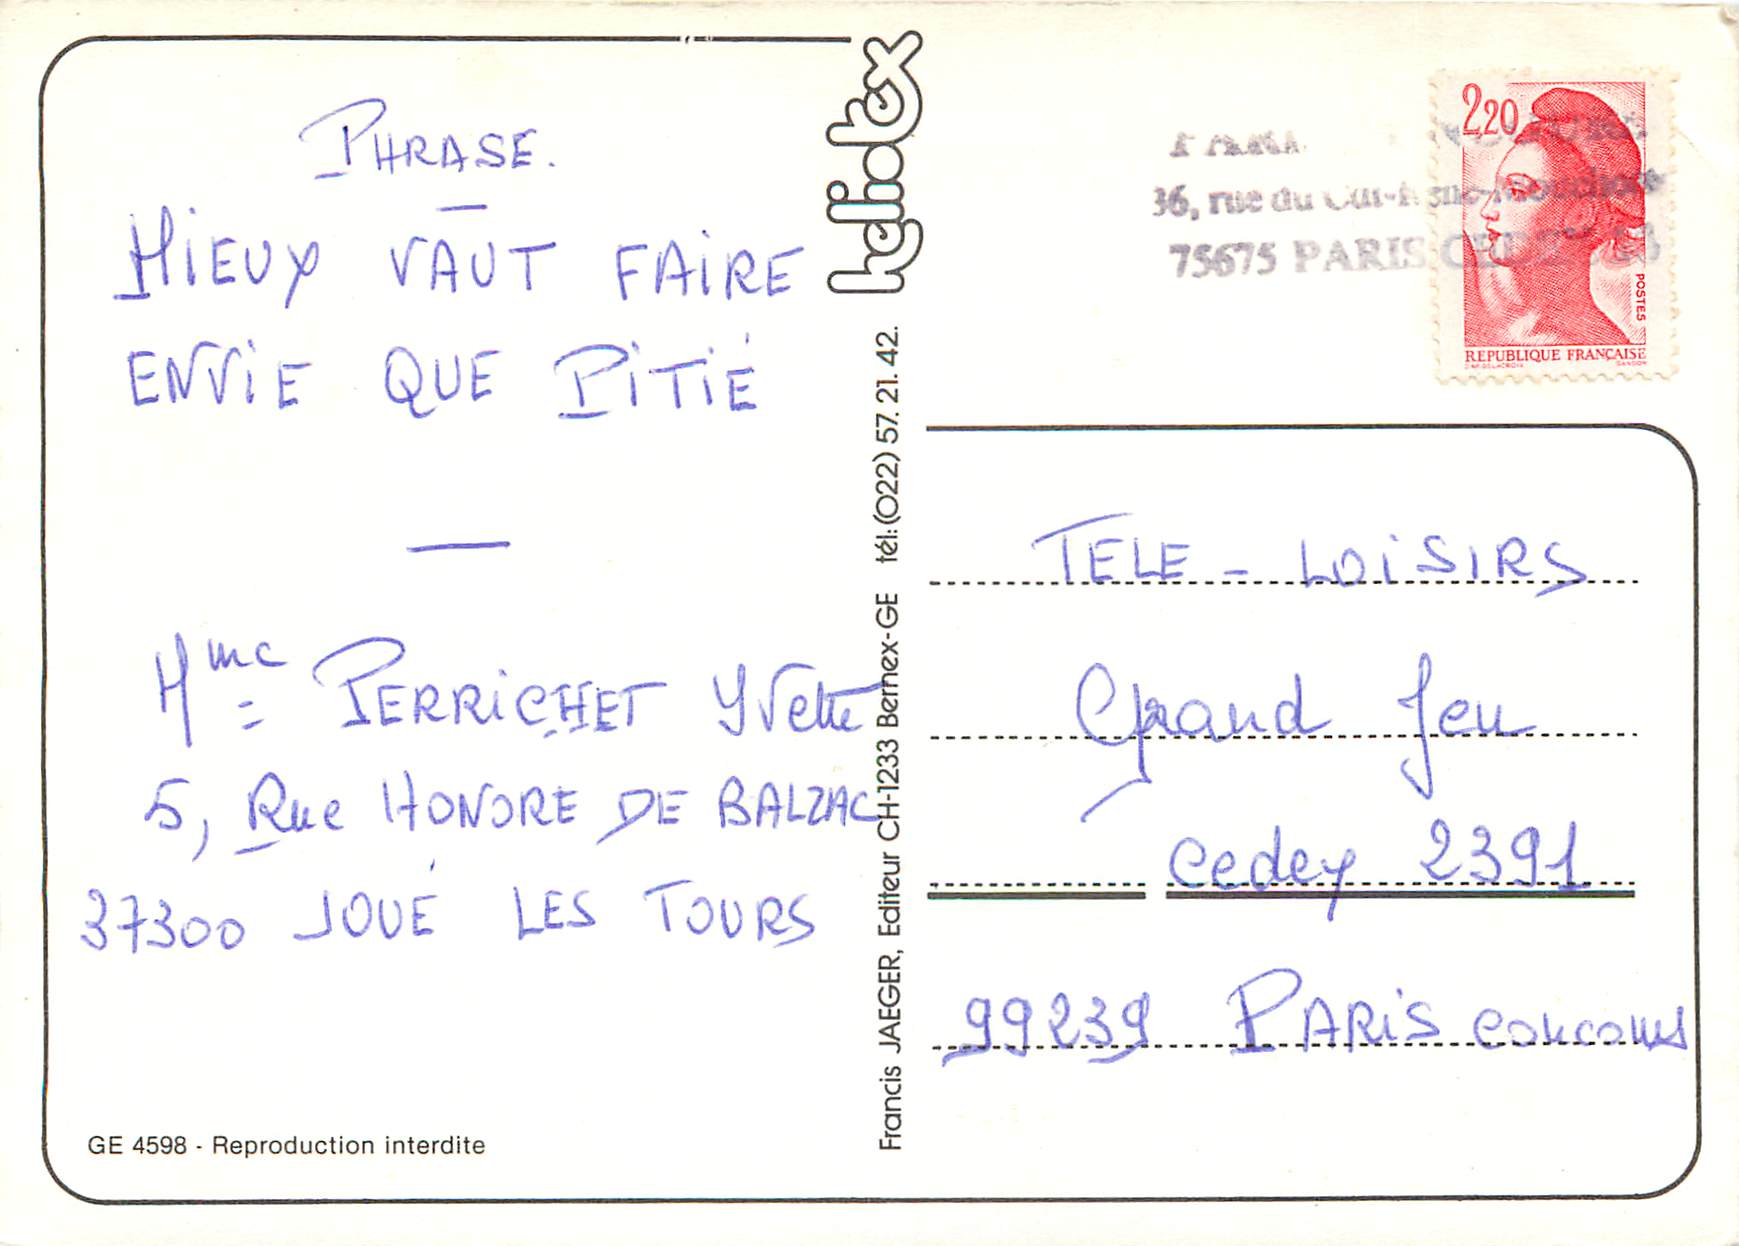 PHRASE.
MIEUX VAUT FAIRE
ENVIE QUE PITIÉ
Mme PERRICHET Yvette
5, Rue HONORE DE BALZAC
37300 JOUÉ LES TOURS
GE 4598 - Reproduction interdite
heliotex
Francis JAEGER, Editeur CH-1233 Bernex-GE tél: (022) 57. 21. 42.
36, rue du
75675 PARIS CEDEX
2,20
POSTES
REPUBLIQUE FRANÇAISE
TELE - LOISIRS
Grand Jeu
Cedex 2391
99239 PARIS concours